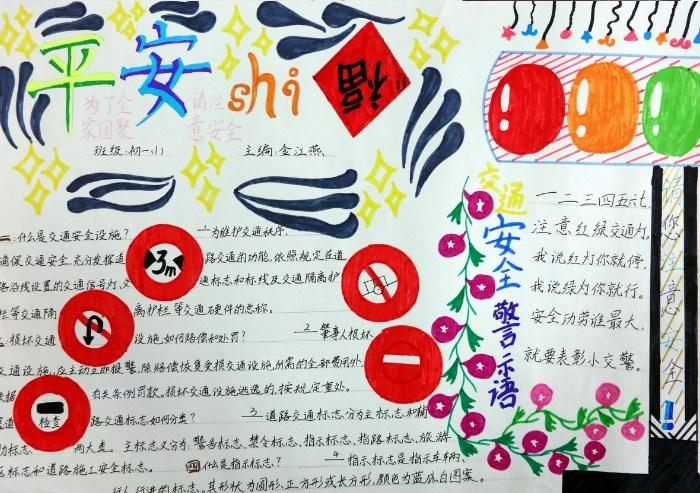 平安shi福
为了全
家团聚
请注
意安全
班级:初一小
主编:金江燕
一:什么是交通安全设施?
一为维护交通秩序,
确保交通安全,充分发挥道
路交通的功能,依照规定在道
路沿线设置的交通信号灯,交
通标志和标线及交通隔离护
栏等交通隔
离护栏等交通硬件的总称。
损坏交通
设施,如何赔偿和处罚?
2一肇事人损坏
交通设施,应主动立即报警,除赔偿恢复受损交通设施,所需的全部费用外,
有关条例罚款。损坏交通设施逃逸的,按规定重处。
路交通标志如何分类?
3.道路交通标志,分为主标志和辅
助标志
两大类。主标志又分为:警告标志、禁令标志、指示标志、指路标志、旅游
区标志和道路施工安全标志。
四什么是指示标志?
4一指示标志是指示车辆、
行人行进的标志。其形状为圆形、正方形或长方形,颜色为蓝底白图案。
3m
检查
交通安全警示语
一二三四五计,
注意红绿交通灯,
我说红灯你就停,
我说绿灯你就行。
安全功劳谁最大,
就要表彰小交警。
请您注意安全!